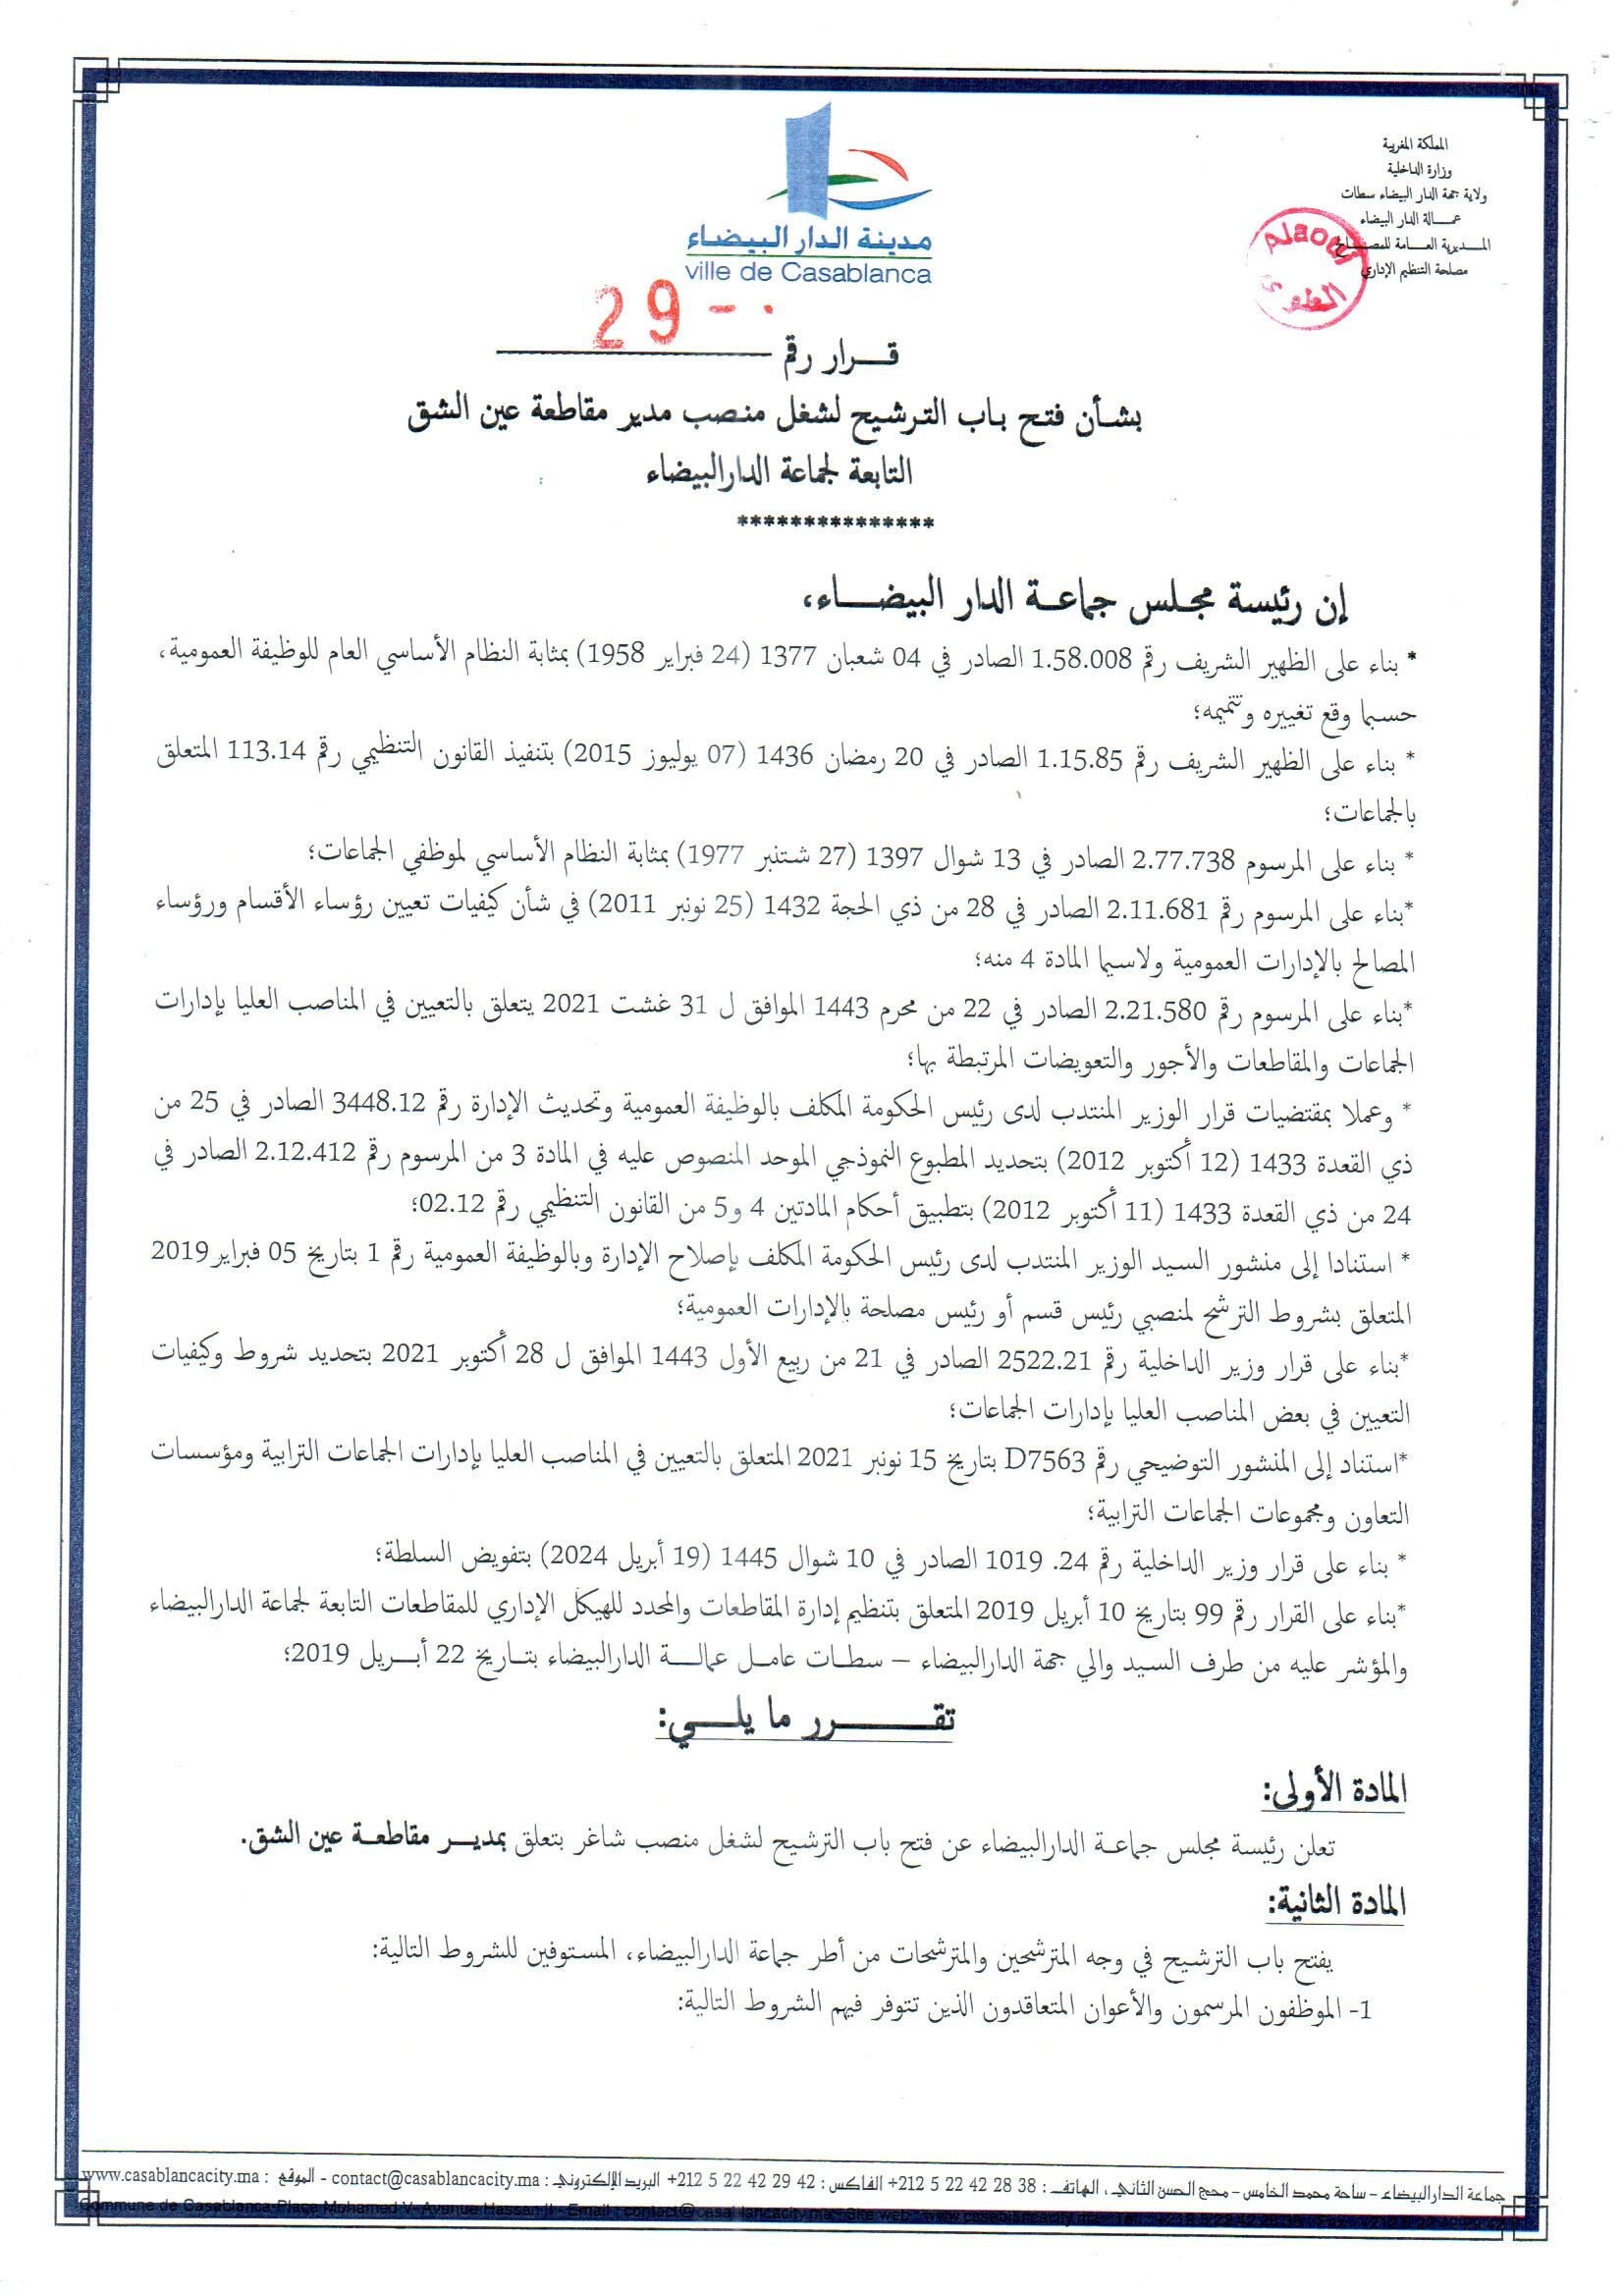 المملكة المغربية
وزارة الداخلية
ولاية جهة الدار البيضاء سطات
عمـــالة الدار البيضاء
المـــديرية العـــامة للمصـــالح
مصلحة التنظيم الإداري
Alaoui
العلوي
مدينة الدار البيضاء
ville de Casablanca
29 -
قـــرار رقم
بشأن فتح باب الترشيح لشغل منصب مدير مقاطعة عين الشق
التابعة لجماعة الدارالبيضاء
***************
إن رئيسة مجلس جماعـة الدار البيضـــاء،
* بناء على الظهير الشريف رقم 1.58.008 الصادر في 04 شعبان 1377 (24 فبراير 1958) بمثابة النظام الأساسي العام للوظيفة العمومية،
حسبما وقع تغييره وتتميمه؛
* بناء على الظهير الشريف رقم 1.15.85 الصادر في 20 رمضان 1436 (07 يوليوز 2015) بتنفيذ القانون التنظيمي رقم 113.14 المتعلق
بالجماعات؛
* بناء على المرسوم 2.77.738 الصادر في 13 شوال 1397 (27 شتنبر 1977) بمثابة النظام الأساسي لموظفي الجماعات؛
*بناء على المرسوم رقم 2.11.681 الصادر في 28 من ذي الحجة 1432 (25 نونبر 2011) في شأن كيفيات تعيين رؤساء الأقسام ورؤساء
المصالح بالإدارات العمومية ولاسيما المادة 4 منه؛
*بناء على المرسوم رقم 2.21.580 الصادر في 22 من محرم 1443 الموافق ل 31 غشت 2021 يتعلق بالتعيين في المناصب العليا بإدارات
الجماعات والمقاطعات والأجور والتعويضات المرتبطة بها؛
* وعملا بمقتضيات قرار الوزير المنتدب لدى رئيس الحكومة المكلف بالوظيفة العمومية وتحديث الإدارة رقم 3448.12 الصادر في 25 من
ذي القعدة 1433 (12 أكتوبر 2012) بتحديد المطبوع النموذجي الموحد المنصوص عليه في المادة 3 من المرسوم رقم 2.12.412 الصادر في
24 من ذي القعدة 1433 (11 أكتوبر 2012) بتطبيق أحكام المادتين 4 و5 من القانون التنظيمي رقم 02.12؛
* استنادا إلى منشور السيد الوزير المنتدب لدى رئيس الحكومة المكلف بإصلاح الإدارة وبالوظيفة العمومية رقم 1 بتاريخ 05 فبراير2019
المتعلق بشروط الترشح لمنصبي رئيس قسم أو رئيس مصلحة بالإدارات العمومية؛
*بناء على قرار وزير الداخلية رقم 2522.21 الصادر في 21 من ربيع الأول 1443 الموافق ل 28 أكتوبر 2021 بتحديد شروط وكيفيات
التعيين في بعض المناصب العليا بإدارات الجماعات؛
*استناد إلى المنشور التوضيحي رقم D7563 بتاريخ 15 نونبر 2021 المتعلق بالتعيين في المناصب العليا بإدارات الجماعات الترابية ومؤسسات
التعاون ومجموعات الجماعات الترابية؛
* بناء على قرار وزير الداخلية رقم 24. 1019 الصادر في 10 شوال 1445 (19 أبريل 2024) بتفويض السلطة؛
*بناء على القرار رقم 99 بتاريخ 10 أبريل 2019 المتعلق بتنظيم إدارة المقاطعات والمحدد للهيكل الإداري للمقاطعات التابعة لجماعة الدارالبيضاء
والمؤشر عليه من طرف السيد والي جهة الدارالبيضاء – سطـات عامـل عمالـــة الدارالبيضاء بتـاريخ 22 أبـــريل 2019؛
تقـــــــرر ما يلـــــي:
المادة الأولى:
تعلن رئيسة مجلس جماعـة الدارالبيضاء عن فتح باب الترشيح لشغل منصب شاغر بتعلق بمديـــر مقاطعـة عين الشق.
المادة الثانية:
يفتح باب الترشيح في وجه المترشحين والمترشحات من أطر جماعة الدارالبيضاء، المستوفين للشروط التالية:
1- الموظفون المرسمون والأعوان المتعاقدون الذين تتوفر فيهم الشروط التالية:
جماعة الدارالبيضاء – ساحة محمد الخامس – محج الحسن الثاني ، الهاتف : 38 28 42 22 5 212+ الفاكس : 42 29 42 22 5 212+ البريد الإلكتروني : contact@casablancacity.ma - الموقع : www.casablancacity.ma
Commune de Casablanca-Place Mohamed V- Avenue Hassan II - Email : contact@casablancacity.ma - Site web : www.casablancacity.ma